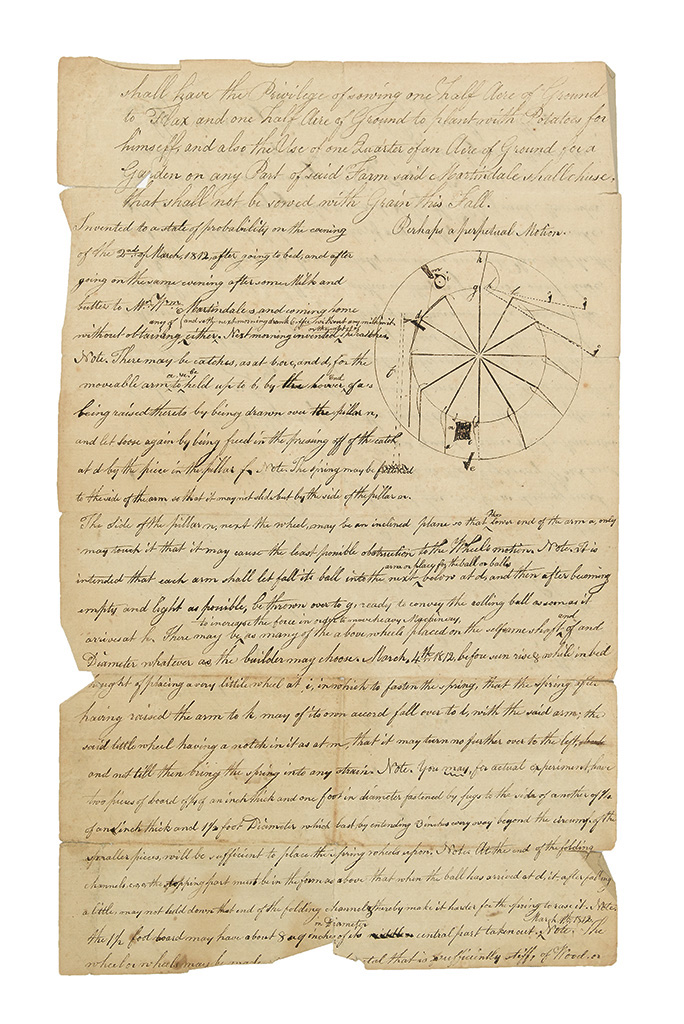 shall have the Privilege of sowing one half Acre of Ground
to Flax and one half Acre of Ground to plant with Potatoes for
himself, and also the Use of one Quarter of an Acre of Ground for a
Garden on any Part of said Farm said Martindale shall chuse.
that shall not be sowed with Grain this Fall.
Perhaps a perpetual Motion.
Invented to a state of probability on the evening
of the 2nd of March, 1812, after going to bed, and after
going on the same evening after some Milk and
butter to Mr. Wm. Martindale's, and coming home
without obtaining any of either. Next morning invented the catches.
Note. There may be catches, as at b, o, c, and d, for the
moveable arm to be held up to b, by the lower end of a's
being raised thereto by being drawn over the pillar n,
and let loose again by being freed in the pressing off of the catch
at d by the piece in the pillar f. Note. The spring may be
to the side of the arm so that it may not slide but by the side of the pillar a.
The side of the pillar n, next the wheel, may be an inclined plane so that the lower end of the arm a, only
may touch it that it may cause the least posible obstruction to the Wheel's motion. Note. It is
intended that each arm shall let fall its ball into the next arm or place for the ball or balls below at d, and then after becoming
empty and light as posible, be thrown over to g, ready to convey the rolling ball as soon as it
arrives at h. There may be, to increase the force in order to move heavy Machinery, as many of the above wheels placed on the selfsame shaft, and of and
Diameter whatever as the builder may choose. March, 4th, 1812, before sun rise & while in bed
thought of placing a very little wheel at i, in which to fasten the spring, that the spring after
having raised the arm to k may of its own accord fall over to l, with the said arm; the
said little wheel having a notch in it as at m, that it may turn no further over to the left,
and not till then bring the spring into any strain. Note. You may, for actual experiment, have
two pieces of board of ¼ of an inch thick and one foot in diameter fastened by pegs to the side of another of ½
of an inch thick and 1½ foot Diameter which last by extending 3 inches every way beyond the circumf. of the
smaller pieces, will be sufficient to place the spring wheels upon. Note. At the end of the folding
channels, the stopping part must be in the form as above that when the ball has arrived at d, it after falling
a little may not hold down that end of the folding channel & thereby make it harder for the spring to raise it. Note.
the 1½ foot board may have about 8 inches in Diameter of its central part taken out. March, 1812. Note. The
wheel or wheels may be made metal that is sufficiently stiff, of Wood, or